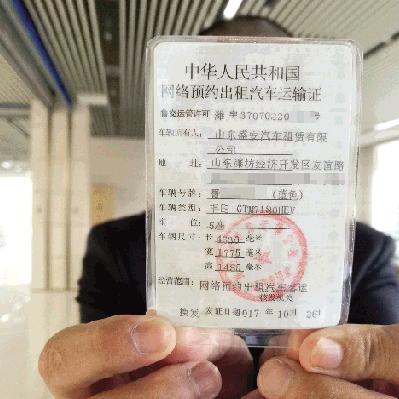 中华人民共和国
网络预约出租汽车运输证
鲁交运管许可 潍 字37070220 号
车辆所有人: 山东盛安汽车租赁有限
公司
地 址: 山东潍坊经济开发区友谊路
车辆号牌: 晋 (蓝色)
车辆类型: 丰田 GTM7180HEV
座 位: 5座
车辆尺寸: 长 4700 毫米
宽 1775 毫米
高 1485 毫米
经营范围: 网络预约出租汽车客运
核发机关
换发 发证日期2017年 10月 26日